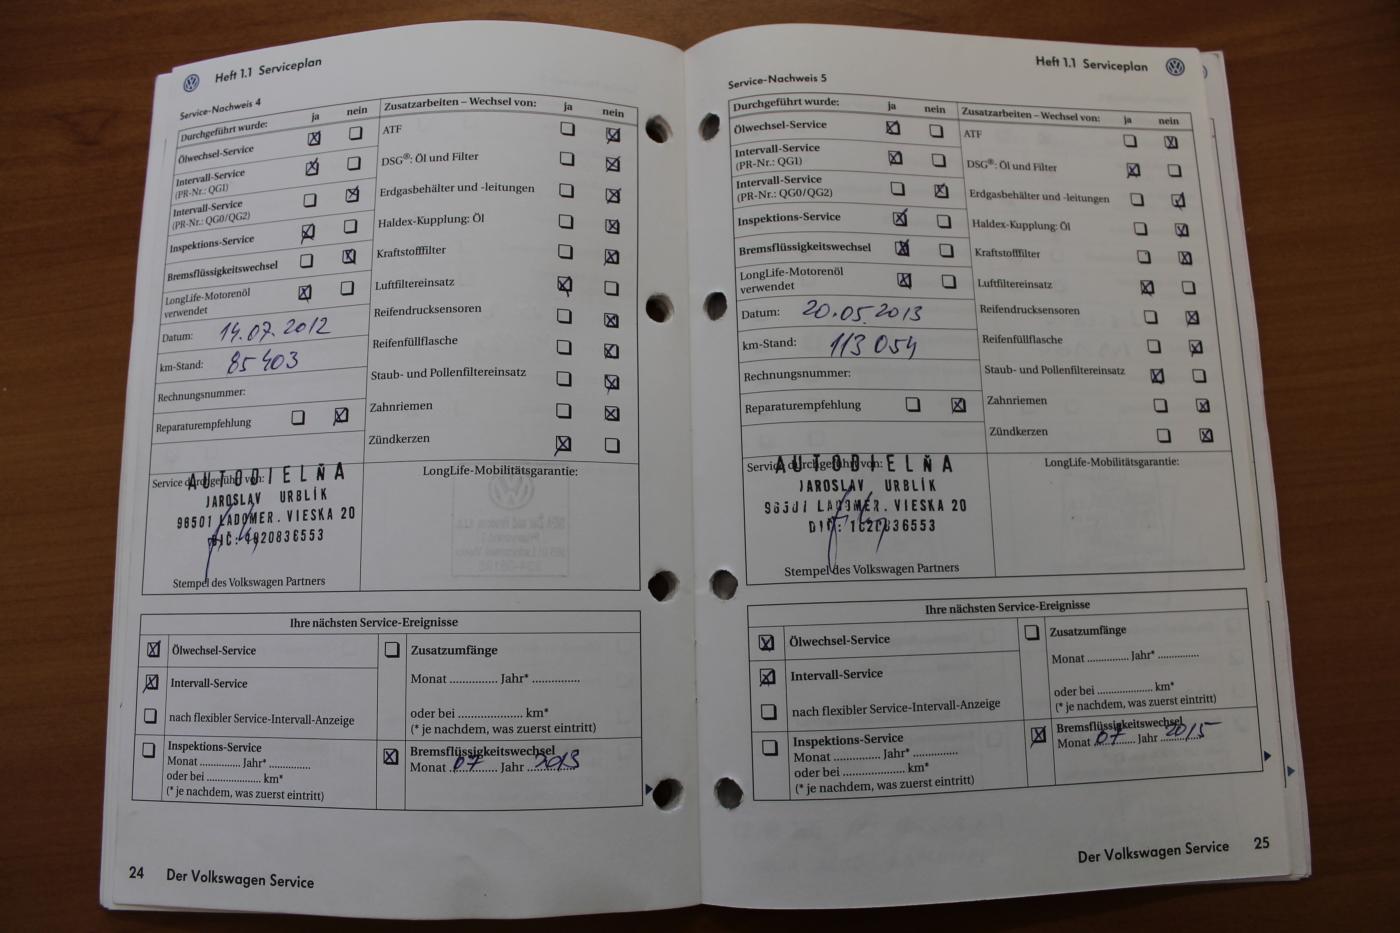 Heft 1.1 Serviceplan
Service-Nachweis 4
Durchgeführt wurde: ja nein
Ölwechsel-Service
Intervall-Service
(PR-Nr.: QG1)
Intervall-Service
(PR-Nr.: QG0/QG2)
Inspektions-Service
Bremsflüssigkeitswechsel
LongLife-Motorenöl
verwendet
Datum: 14.07.2012
km-Stand: 85 403
Rechnungsnummer:
Reparaturempfehlung
Zusatzarbeiten – Wechsel von: ja nein
ATF
DSG®: Öl und Filter
Erdgasbehälter und -leitungen
Haldex-Kupplung: Öl
Kraftstofffilter
Luftfiltereinsatz
Reifendrucksensoren
Reifenfüllflasche
Staub- und Pollenfiltereinsatz
Zahnriemen
Zündkerzen
Service durchgeführt von:
AUTODIELŇA
JAROSLAV URBLÍK
96501 LADOMER. VIESKA 20
DIČ: 1020836553
Stempel des Volkswagen Partners
LongLife-Mobilitätsgarantie:
Ihre nächsten Service-Ereignisse
Ölwechsel-Service
Intervall-Service
nach flexibler Service-Intervall-Anzeige
Inspektions-Service
Monat .............. Jahr* ..............
oder bei .................... km*
(* je nachdem, was zuerst eintritt)
Zusatzumfänge
Monat .............. Jahr* ..............
oder bei .................... km*
(* je nachdem, was zuerst eintritt)
Bremsflüssigkeitswechsel
Monat 07 Jahr 2013
24 Der Volkswagen Service
Heft 1.1 Serviceplan
Service-Nachweis 5
Durchgeführt wurde: ja nein
Ölwechsel-Service
Intervall-Service
(PR-Nr.: QG1)
Intervall-Service
(PR-Nr.: QG0/QG2)
Inspektions-Service
Bremsflüssigkeitswechsel
LongLife-Motorenöl
verwendet
Datum: 20.05.2013
km-Stand: 113 054
Rechnungsnummer:
Reparaturempfehlung
Zusatzarbeiten – Wechsel von: ja nein
ATF
DSG®: Öl und Filter
Erdgasbehälter und -leitungen
Haldex-Kupplung: Öl
Kraftstofffilter
Luftfiltereinsatz
Reifendrucksensoren
Reifenfüllflasche
Staub- und Pollenfiltereinsatz
Zahnriemen
Zündkerzen
Service durchgeführt von:
AUTODIELŇA
JAROSLAV URBLÍK
96501 LADOMER. VIESKA 20
DIČ: 1020836553
Stempel des Volkswagen Partners
LongLife-Mobilitätsgarantie:
Ihre nächsten Service-Ereignisse
Ölwechsel-Service
Intervall-Service
nach flexibler Service-Intervall-Anzeige
Inspektions-Service
Monat .............. Jahr* ..............
oder bei .................... km*
(* je nachdem, was zuerst eintritt)
Zusatzumfänge
Monat .............. Jahr* ..............
oder bei .................... km*
(* je nachdem, was zuerst eintritt)
Bremsflüssigkeitswechsel
Monat 07 Jahr 2015
Der Volkswagen Service 25